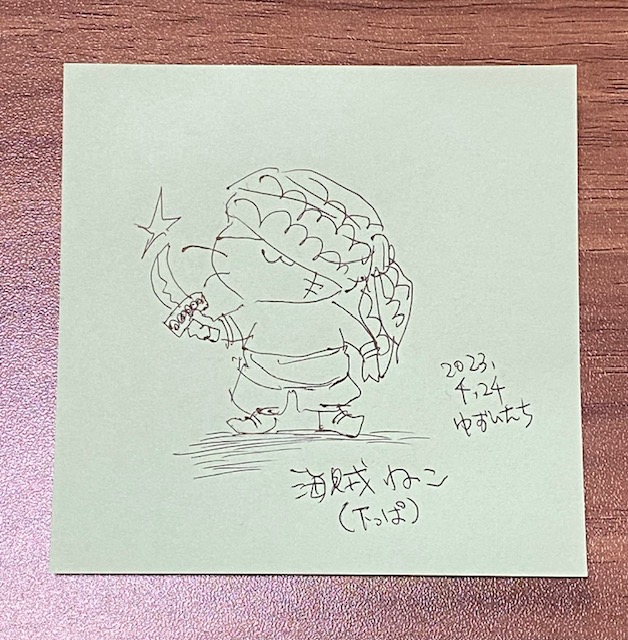 2023,
4,24
ゆずいたち
海賊ねこ
(下っぱ)